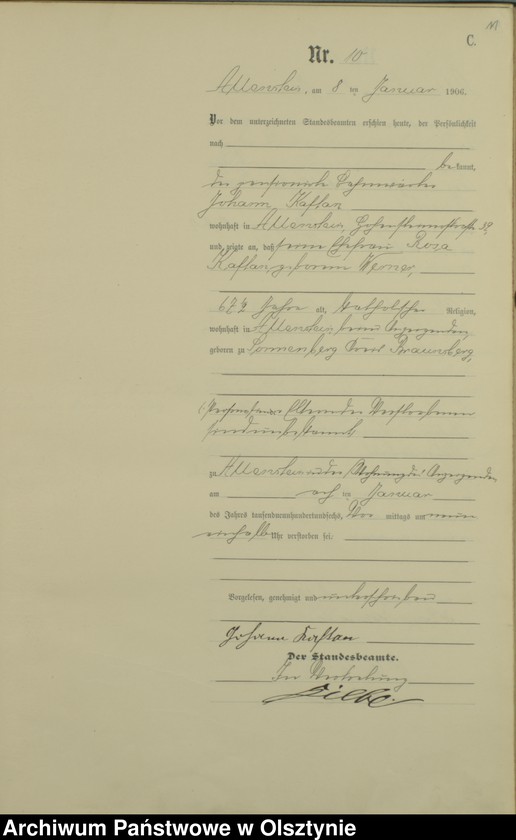 C.
Nr. 10
Allenstein, am 8 ten Januar 1906.
Vor dem unterzeichneten Standesbeamten erschien heute, der Persönlichkeit
nach
be kannt,
der pensionierte Bahnwärter
Johann Kaftan
wohnhaft in Allenstein, Hohensteinerstraße
und zeigte an, daß seine Ehefrau Roza
Kaftan, geborene
Jahre alt, katholischer Religion,
wohnhaft in Allenstein, beim Anzeigenden
geboren zu Sonnenberg Kreis Braunsberg,
Eltern der Verstorbenen
sind unbekannt
zu Allenstein in der Wohnung des Anzeigenden
am acht ten Januar
des Jahres tausendneunhundertundsechs, Vor mittags um neun
einhalb Uhr verstorben sei.
Vorgelesen, genehmigt und unterschrieben
Johann Kaftan
Der Standesbeamte.
In Vertretung
Archiwum Państwowe w Olsztynie